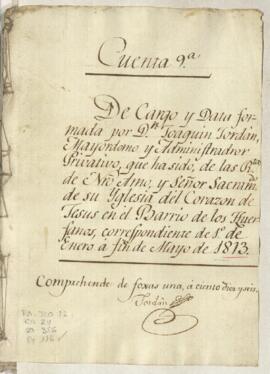 Cuenta 9.a
De Cargo y Data for-
mada por Dn. Joaquin Jordán,
Mayordomo y Administrador
Privativo, que ha sido, de las
de Ntro Amo, y Señor Sacramdo.
de su Yglesia del Corazon de
Jesus en el Barrio de los Huer-
fanos, correspondiente de 1.º de
Enero à fin de Mayo de 1813.
Comprehende de foxas una, à ciento diez y seis.
Jordán